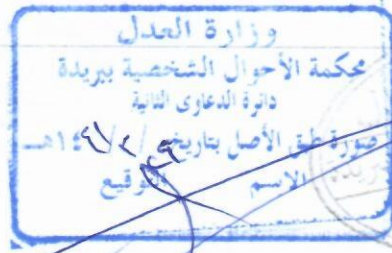 وزارة العدل
محكمة الأحوال الشخصية ببريدة
دائرة الدعاوى الثانية
صورة طبق الأصل بتاريخ / / ١٤هـ
الاسم التوقيع